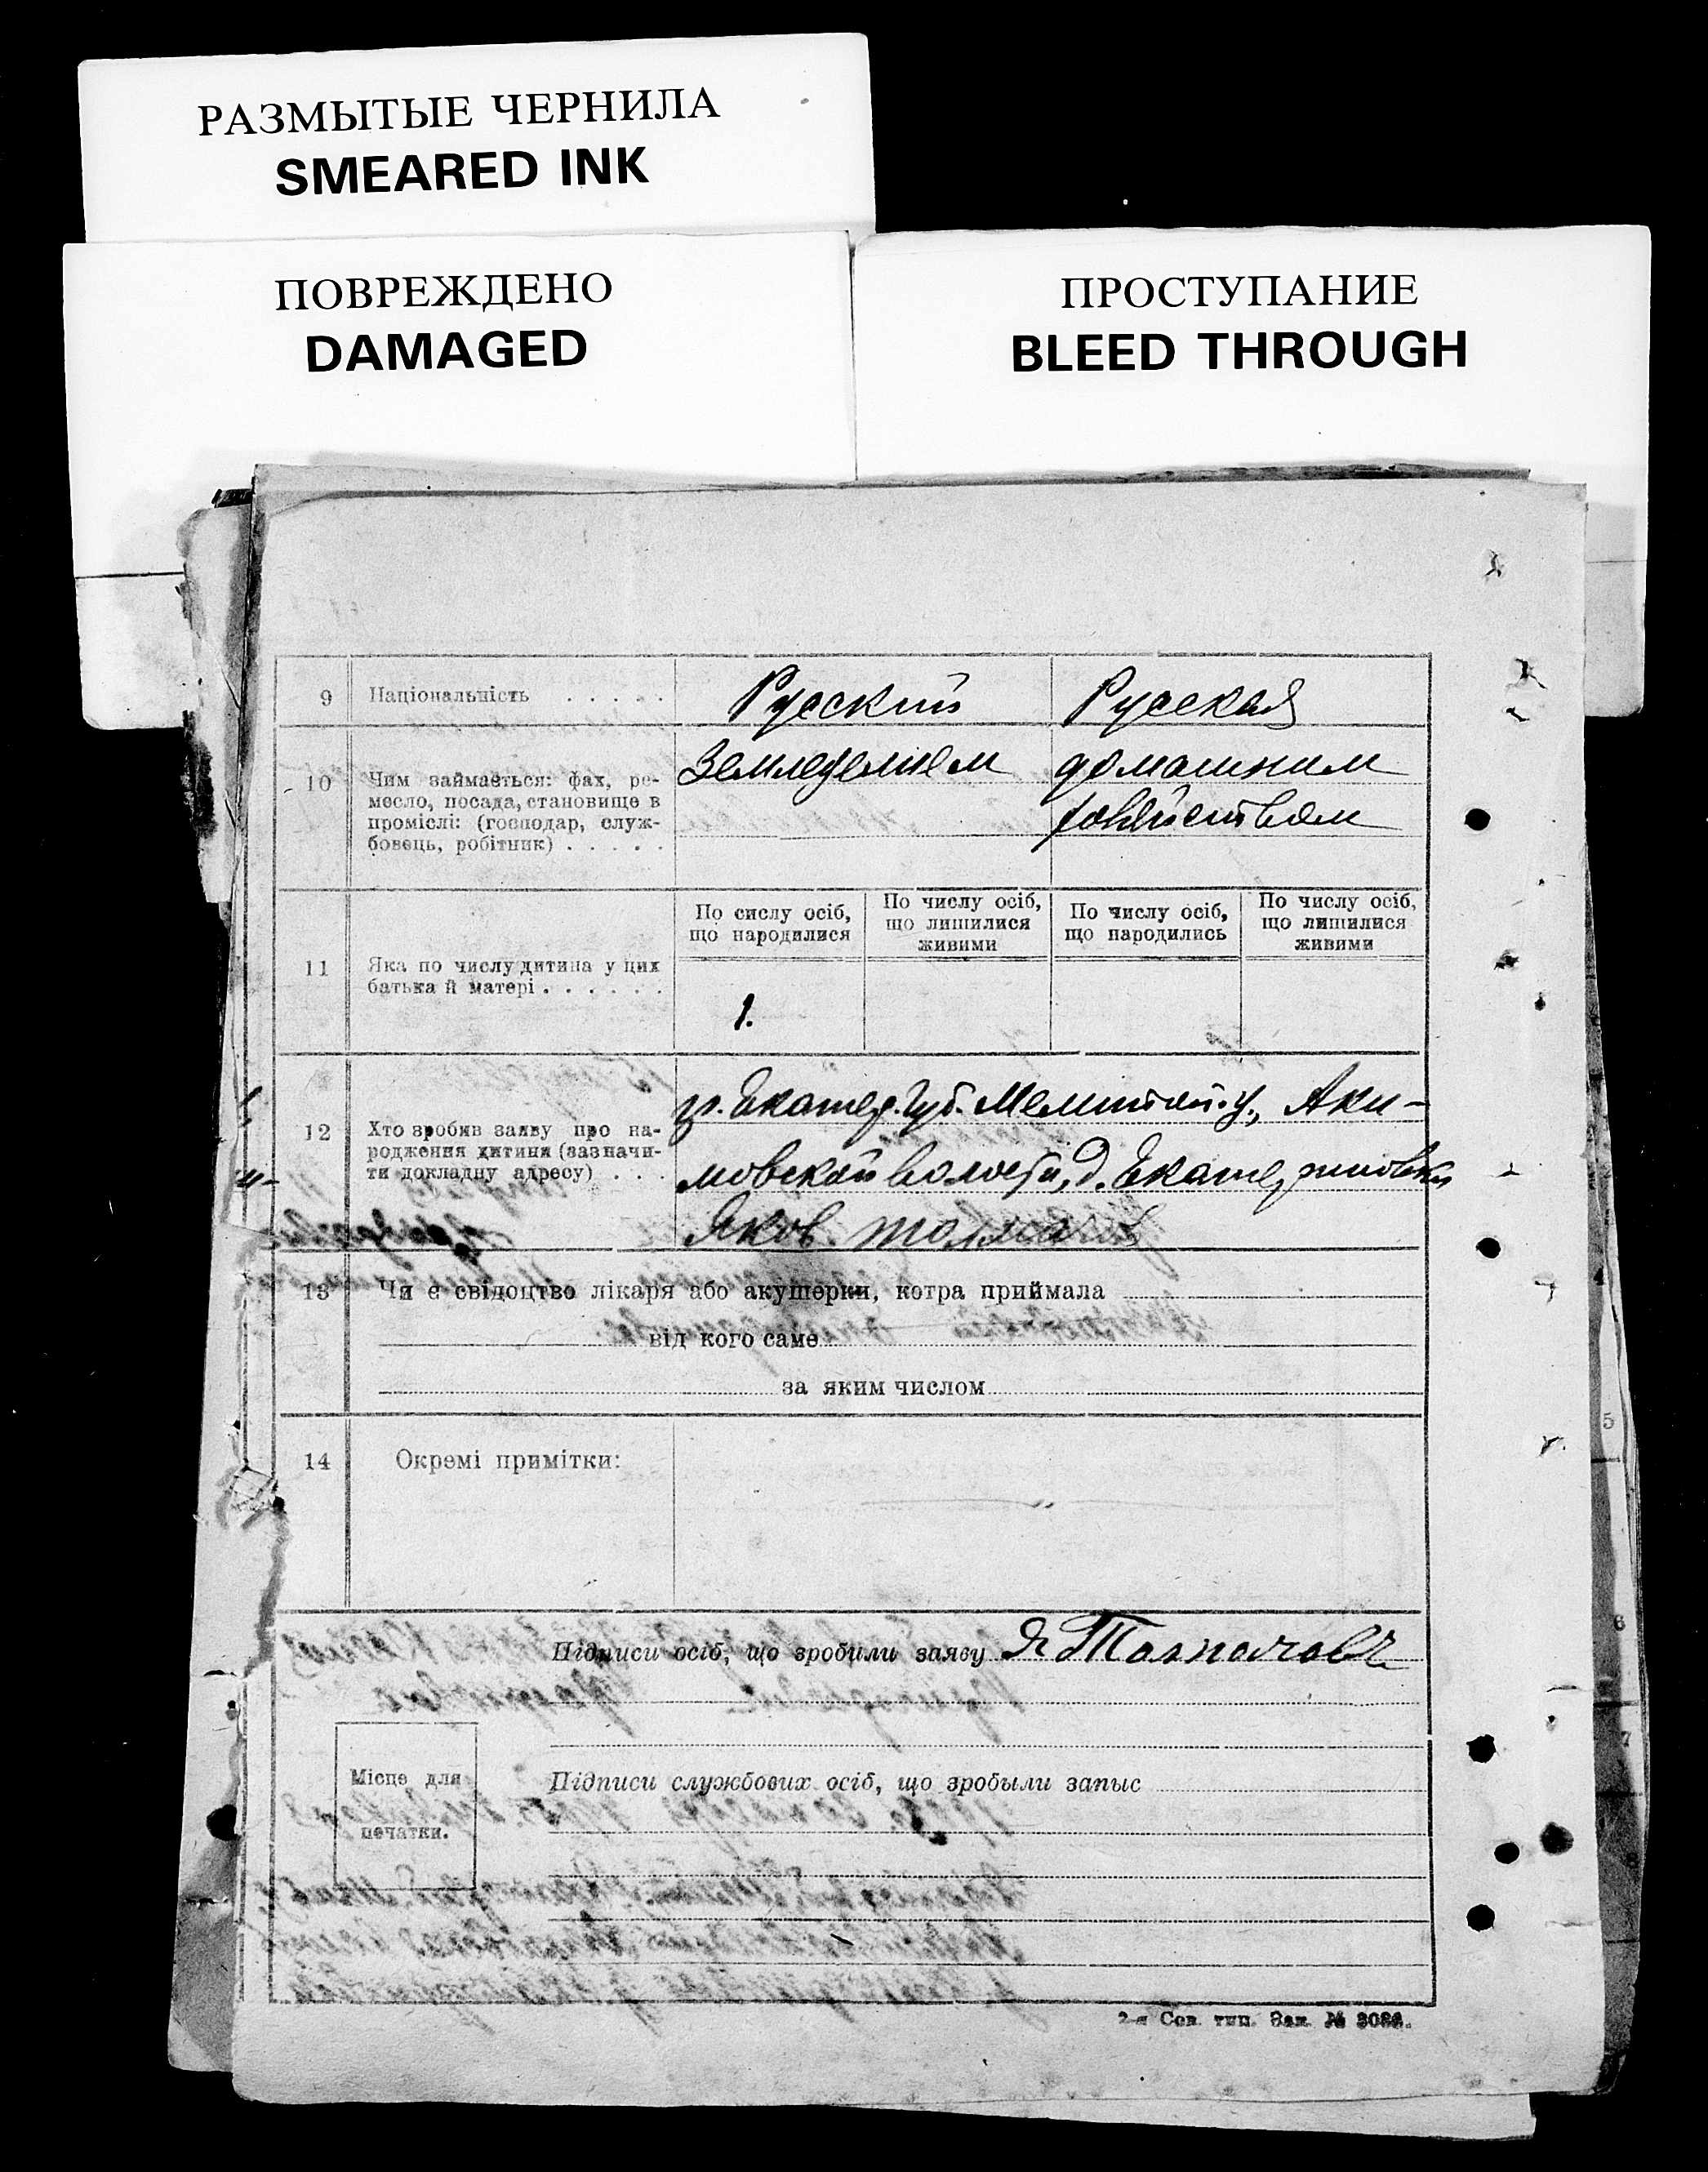 РАЗМЫТЫЕ ЧЕРНИЛА
SMEARED INK
ПОВРЕЖДЕНО
DAMAGED
ПРОСТУПАНИЕ
BLEED THROUGH
9 Національність . . . . . Русский Русская
10 Чим займається: фах, ре-
месло, посада, становище в
проміслі: (господар, служ-
бовець, робітник) . . . . .
Земледелием
домашним
хозяйством
11 Яка по числу дитина у цих
батька й матері . . . . . .
По сислу осіб,
що народилися
По числу осіб,
що лишилися
живими
По числу осіб,
що народились
По числу осіб,
що лишилися
живими
1.
12 Хто зробив заяву про на-
родження дитини (зазначи-
ти докладну адресу) . . .
гр. Екатер. Губ. Мелитоп. у., Аки-
мовской волости, д. Екатериновки
Яков Толмачов
13 Чи є свідоцтво лікаря або акушерки, котра приймала
від кого саме
за яким числом
14 Окремі примітки:
Підписи осіб, що зробили заяву Я Толмачовъ
Місце для
печатки.
Підписи службових осіб, що зробыли запыс
2-я Сов. тип. Зак. №
5
6
7